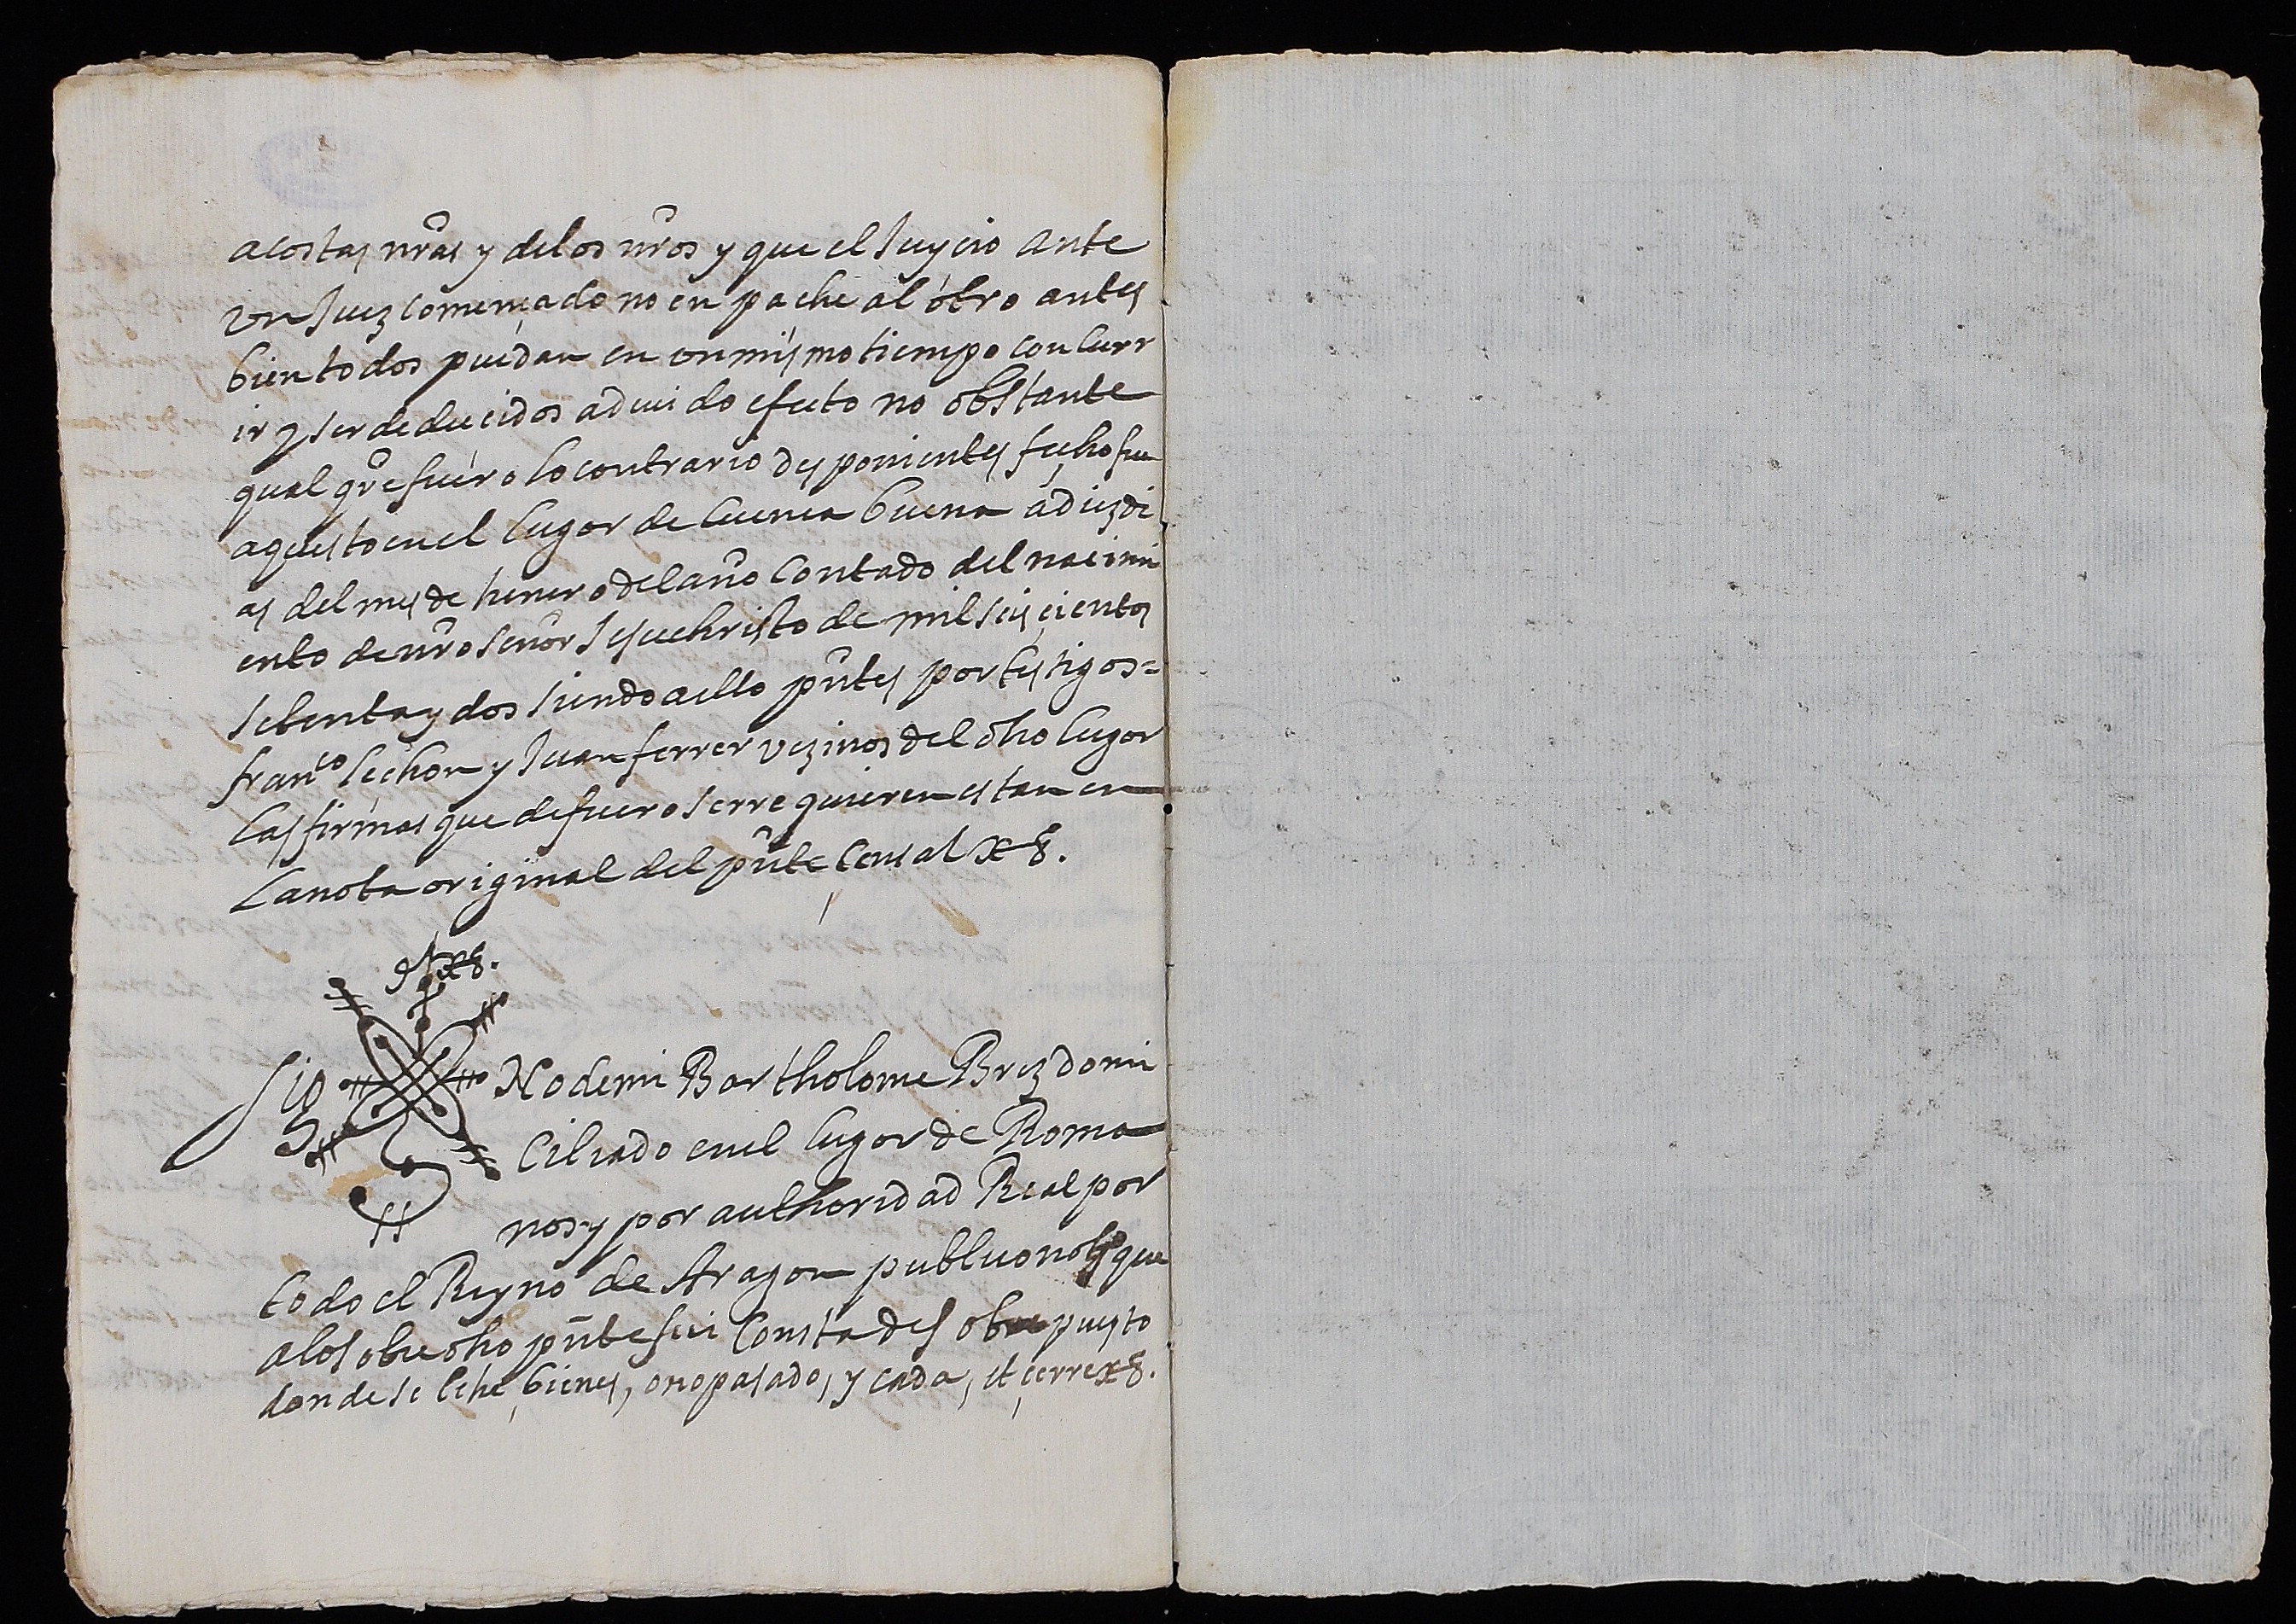 acostas nr̃as y delos nr̃os y que el Juycio ante
vn Juez començado no enpache al otro antes
bien todos puedan en vn mismo tiempo concurr
ir y ser deducidos adeuido efecto no obstante
qual qr̃e fuero lo contrario desponientes fecho fue
aquesto en el lugar de Cuenca buena adiezdi
as del mes de henero del año contado del nacimi
ento de nr̃o Señor Jesuchristo de mil seis çientos
setenta y dos siendo aello pñtes por testigos=
franco lechon y Juan ferrer vezinos del dho lugar
las firmas que de fuero se rrequieren estan en
la nota original del pñte Censal
Sig No de mi Bartholome Brez domi
ciliado en el lugar de Roma
nos y por authoridad Real por
todo el Reyno de Aragon publico notᵒ que
alo sobre dho pñte fui Consta de sobre puesto
donde se lehe, bienes, o no pasado, y cada, et çerre